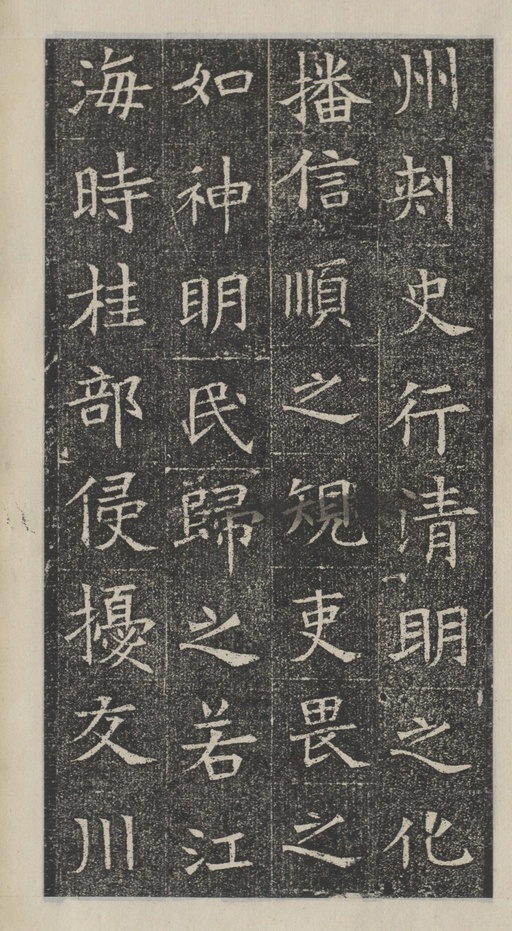 州刾史行清明之化
播信順之規吏畏之
如神明民歸之若江
海時桂部侵擾交川